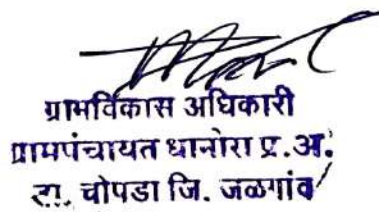 ग्रामविकास अधिकारी
ग्रामपंचायत धानोरा प्र.अ.
ता. चोपडा जि. जळगांव